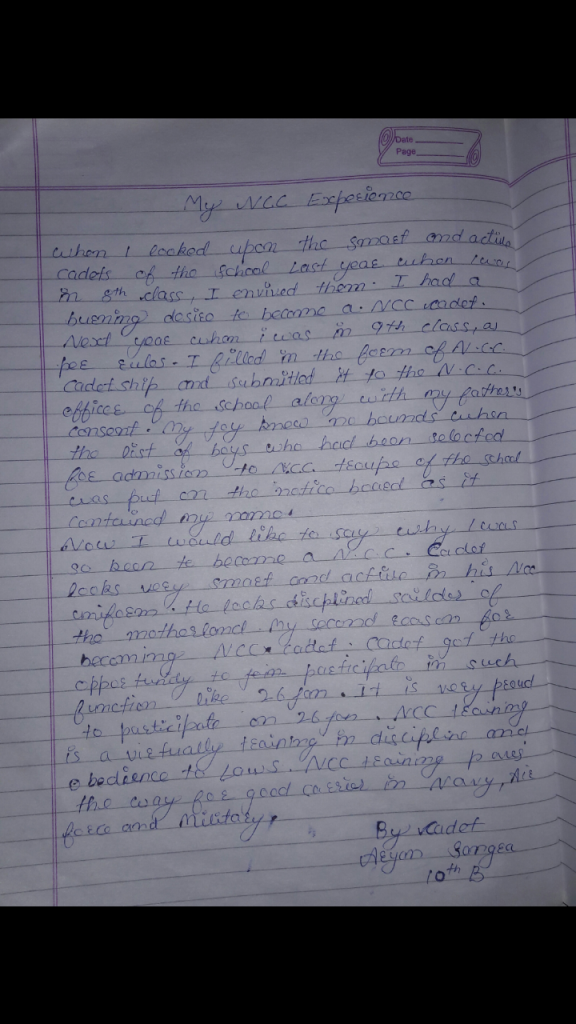 Date
Page
My NCC Experience
when I looked upon the smart and active
cadets of the school last year when I was
in 8th class, I envived them. I had a
burning desire to become a NCC cadet.
Next year when i was in 9th class, as
per rules. I filled in the form of N.CC.
Cadet ship and submitted it to the N.C.C.
officer of the school along with my father's
consent. My joy knew no bounds when
the list of boys who had been selected
for admission to NCC troupe of the school
was put on the notice board as it
contained my name.
Now I would like to say why I was
so keen to become a N.C.C. Cadet
looks very smart and active in his Ncc
uniform. He looks discplined soilder of
the motherland. My second reason for
becoming NCC cadtet. Cadet got the
oppertundy to join participate in such
function like 26 Jan. It is very proud
to participate on 26 jan. NCC training
is a virtually training in discipline and
obedience to Laws. NCC training paves
the way for good carrier in Navy, Air
force and Military.
By cadet
Aryan Sangra
10th B